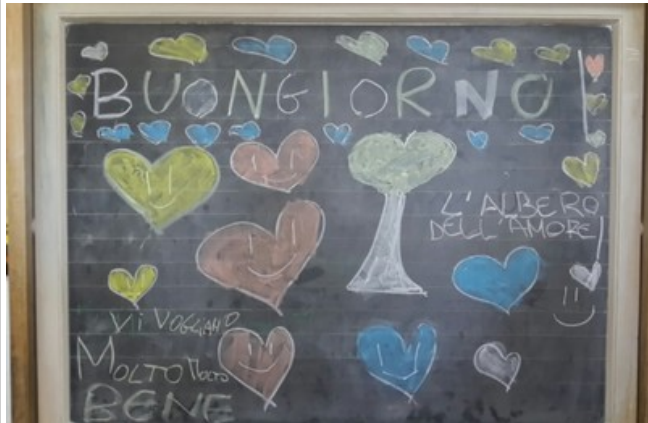 BUONGIORNO!
L'ALBERO
DELL'AMORE!
VI VOGLIAMO
MOLTO MOLTO
BENE